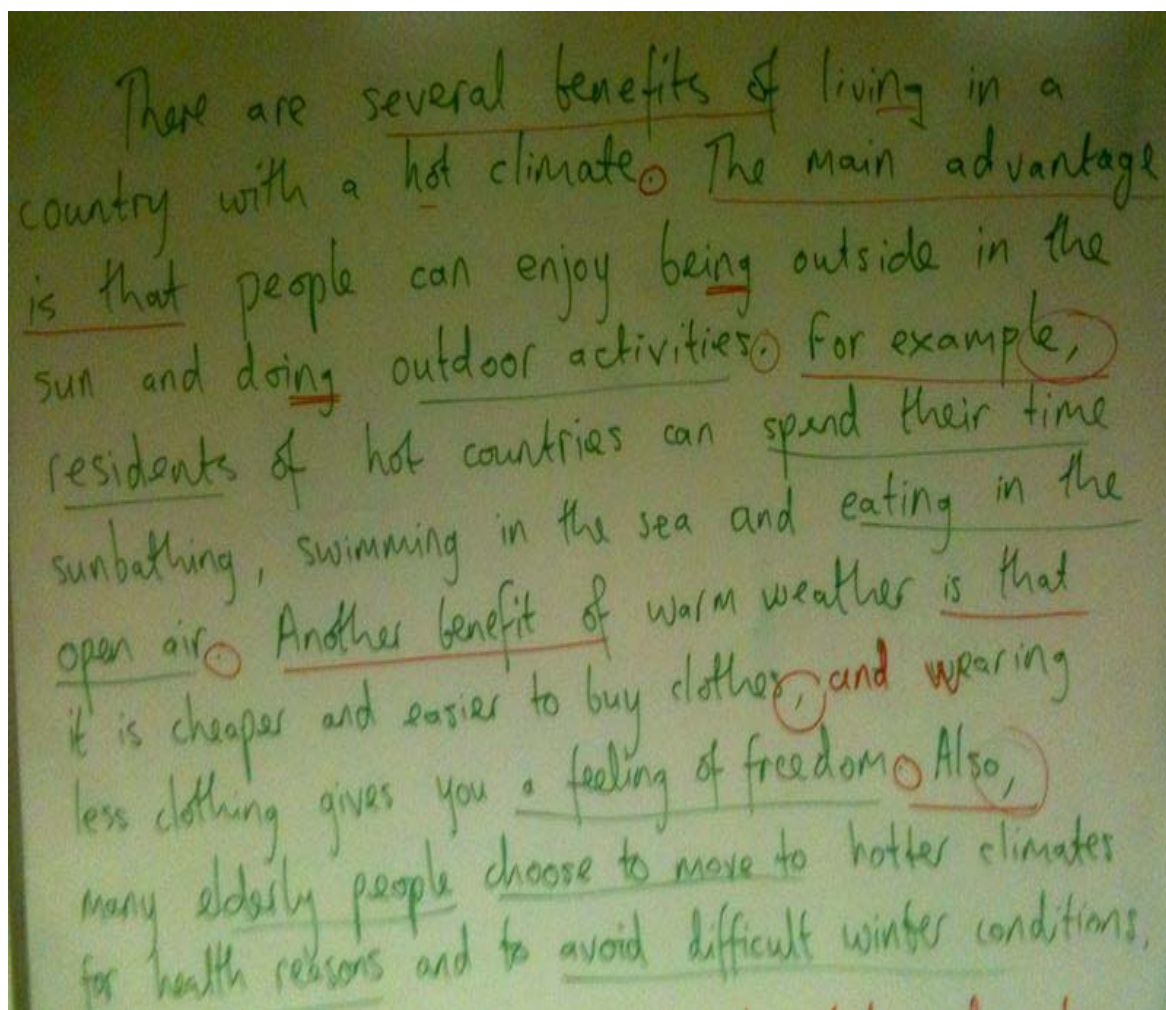 There are several benefits of living in a
country with a hot climate. The main advantage
is that people can enjoy being outside in the
sun and doing outdoor activities. For example,
residents of hot countries can spend their time
sunbathing, swimming in the sea and eating in the
open air. Another benefit of warm weather is that
it is cheaper and easier to buy clothes, and wearing
less clothing gives you a feeling of freedom. Also,
many elderly people choose to move to hotter climates
for health reasons and to avoid difficult winter conditions.